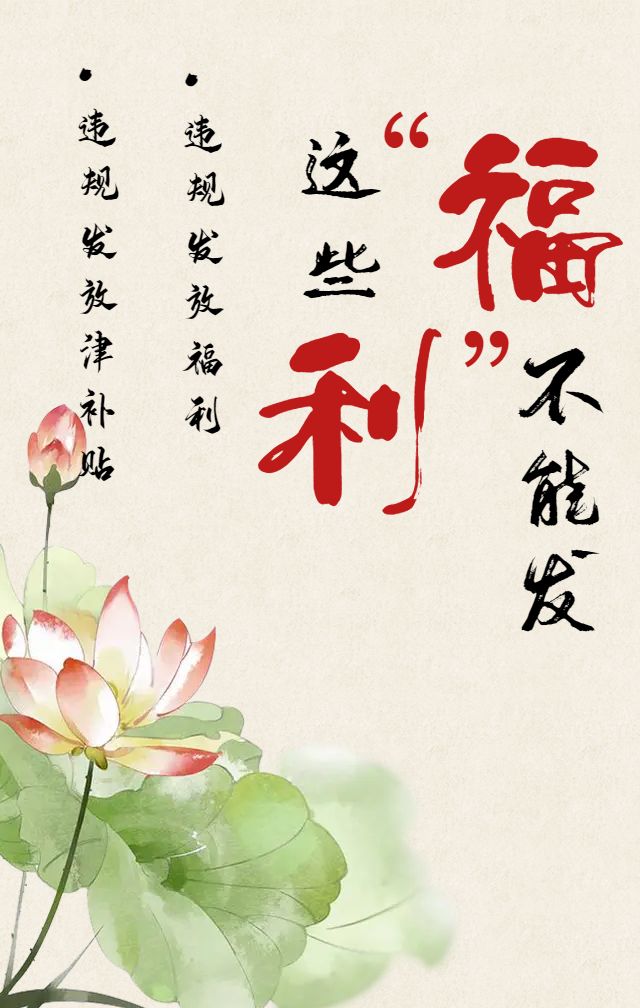 这些“福利”不能发
• 违规发放福利
• 违规发放津补贴